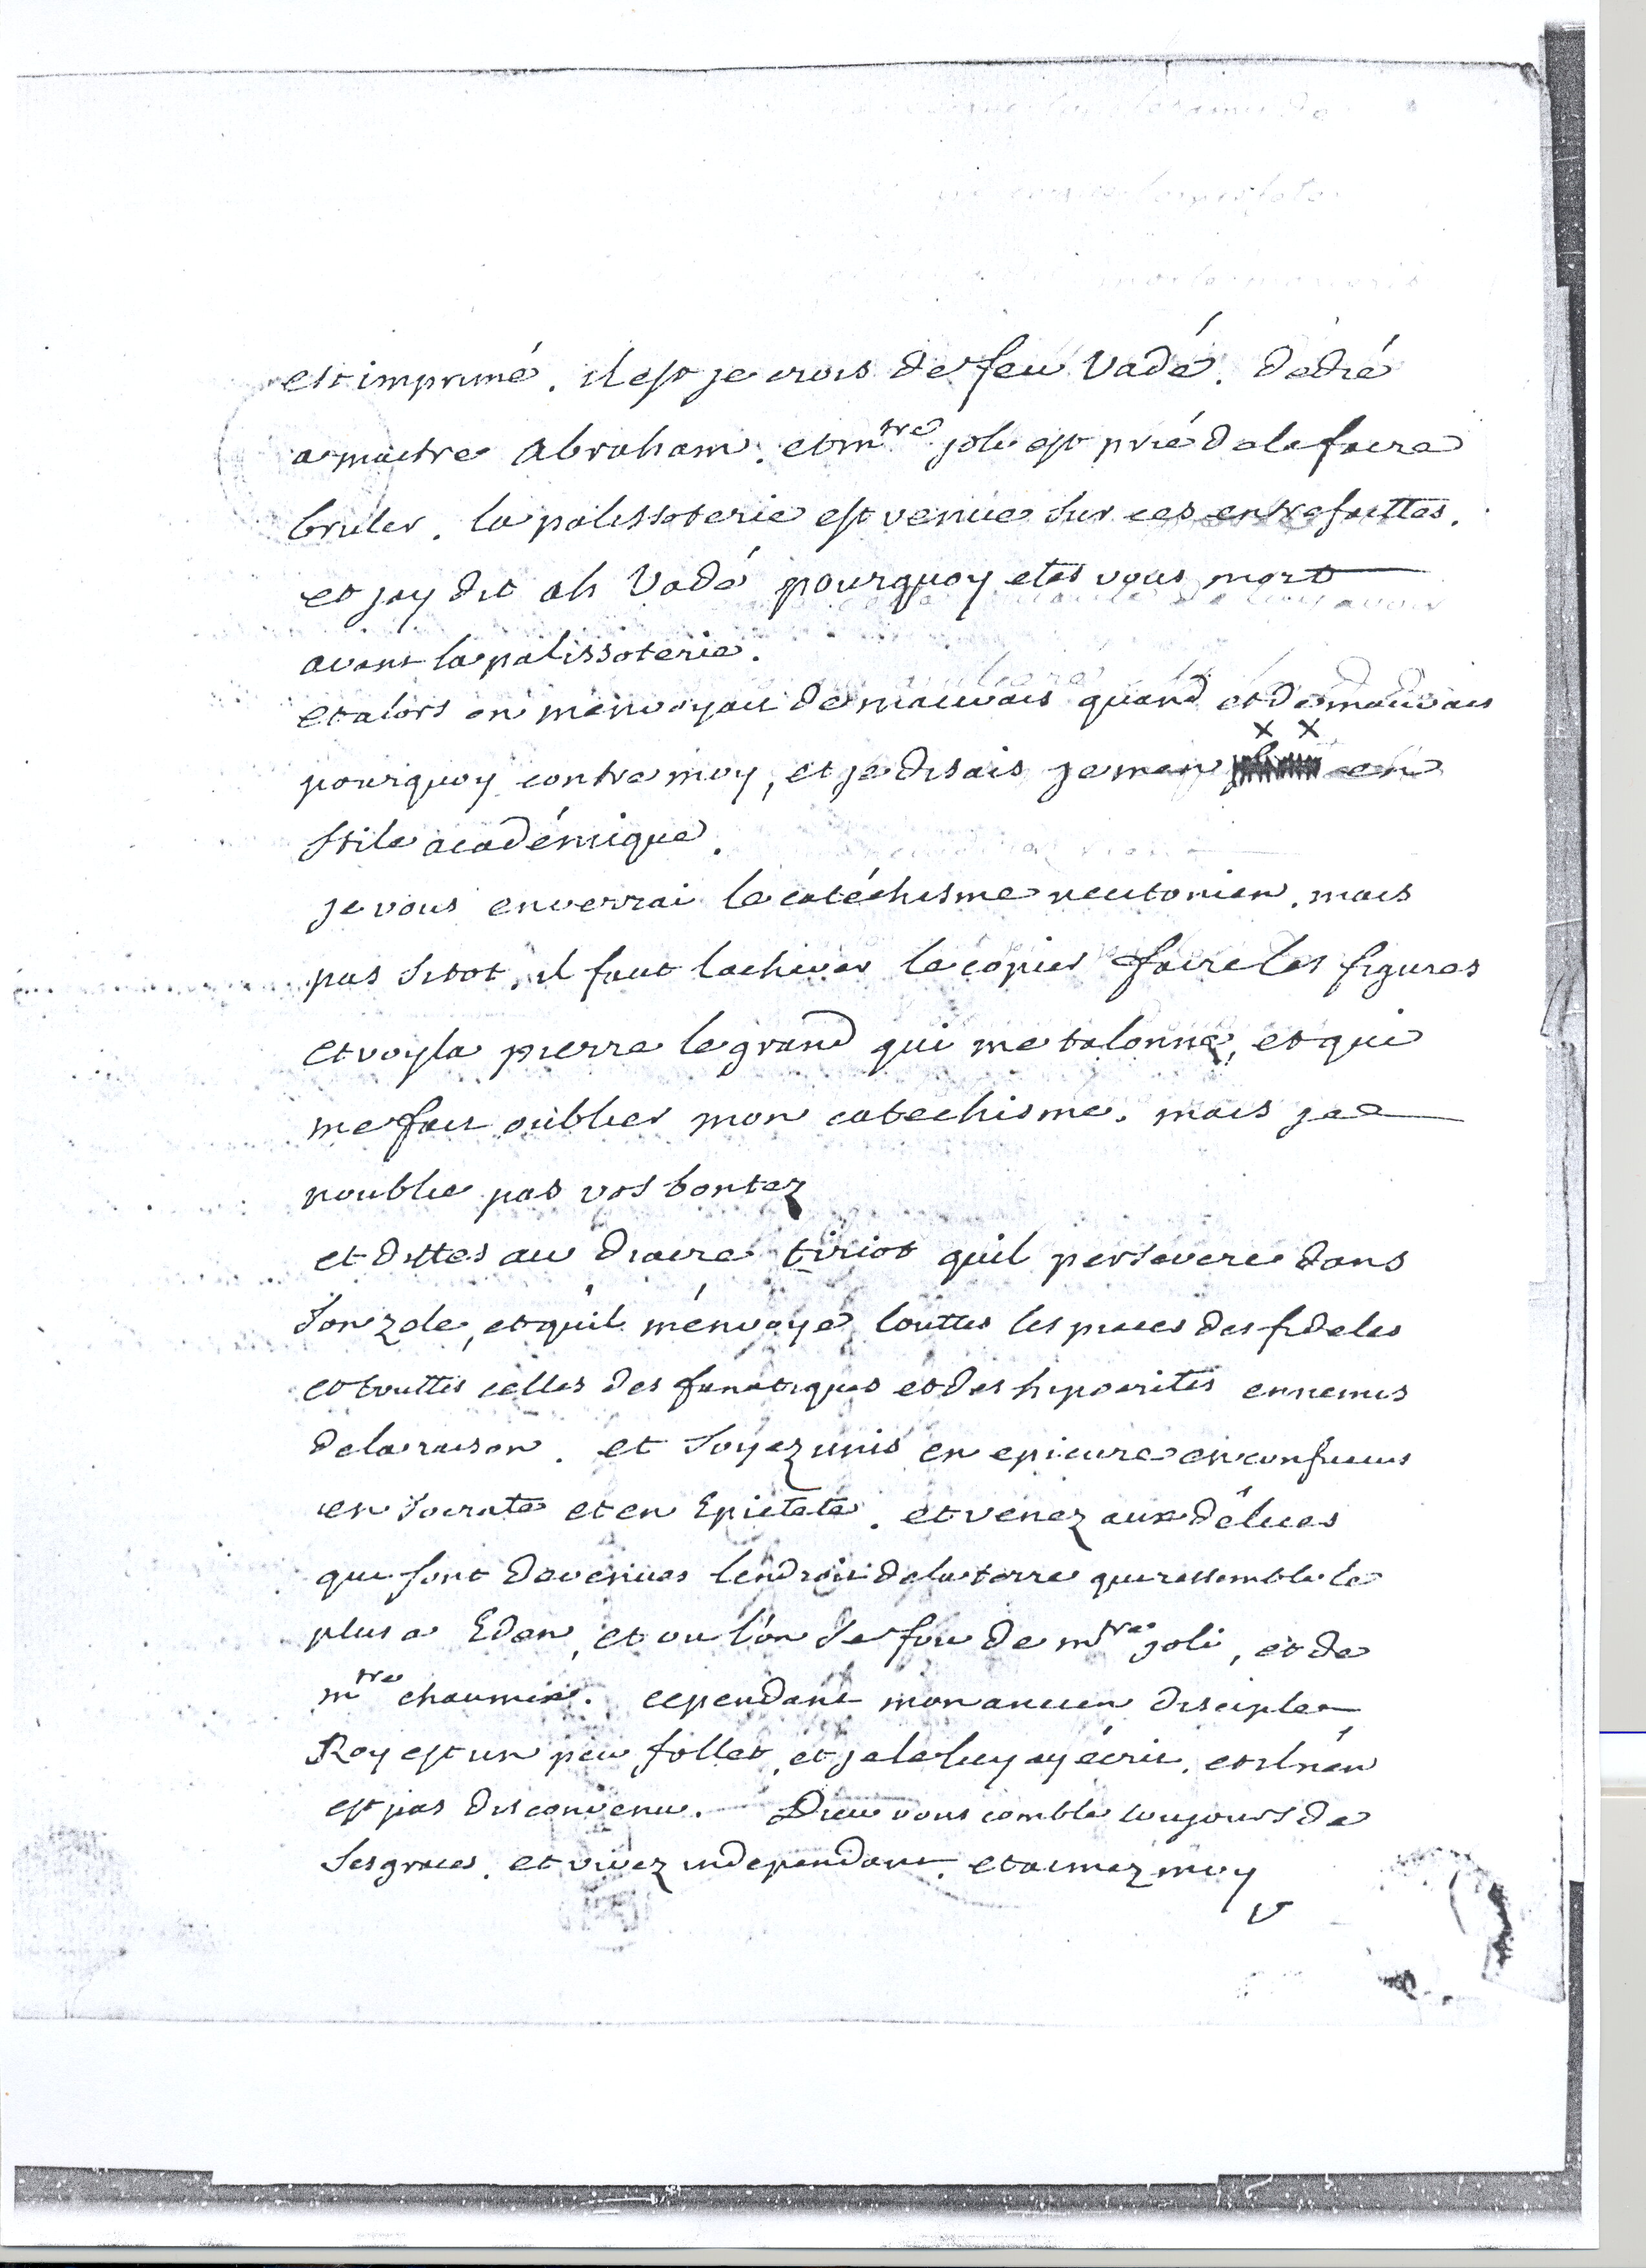 est imprimé. il est je crois de feu Vadé. dédié
a maitre Abraham. et mtre joli est prié de le faire
bruler. la palissoterie est venue sur ces entrefaittes.
et jay dit ah Vadé pourquoy etes vous mort
avant la palissoterie.
et alors on m'envoyait de mauvais quand et de mauvais
pourquoy contre moy, et je disais je men en
stile académique.
je vous enverrai le catéchisme neutonien. mais
pas sitot, il faut lachever le copier faire les figures
et voyla pierre le grand qui me talonne, et qui
me fait oublier mon catechisme. mais je
noublie pas vos bontez
et dittes au diacre tiriot quil persevere dans
son zele, et quil m'envoye touttes les pieces des fideles
et touttes celles des fanatiques et des hipocrites ennemis
de la raison. et soyez unis en epicure en confucius
en Socrate et en Epictete. et venez aux délices
qui sont devenues lendroit de la terre qui ressemble le
plus a Eden, et ou l'on se fou de mtre joli, et de
mtre chaumex. cependant mon ancien disciple
Roy est un peu follet, et je le luy ay écrit. et il n'en
est pas disconvenu. Dieu vous comble toujours de
ses graces. et vivez independant. et aimez moy
V